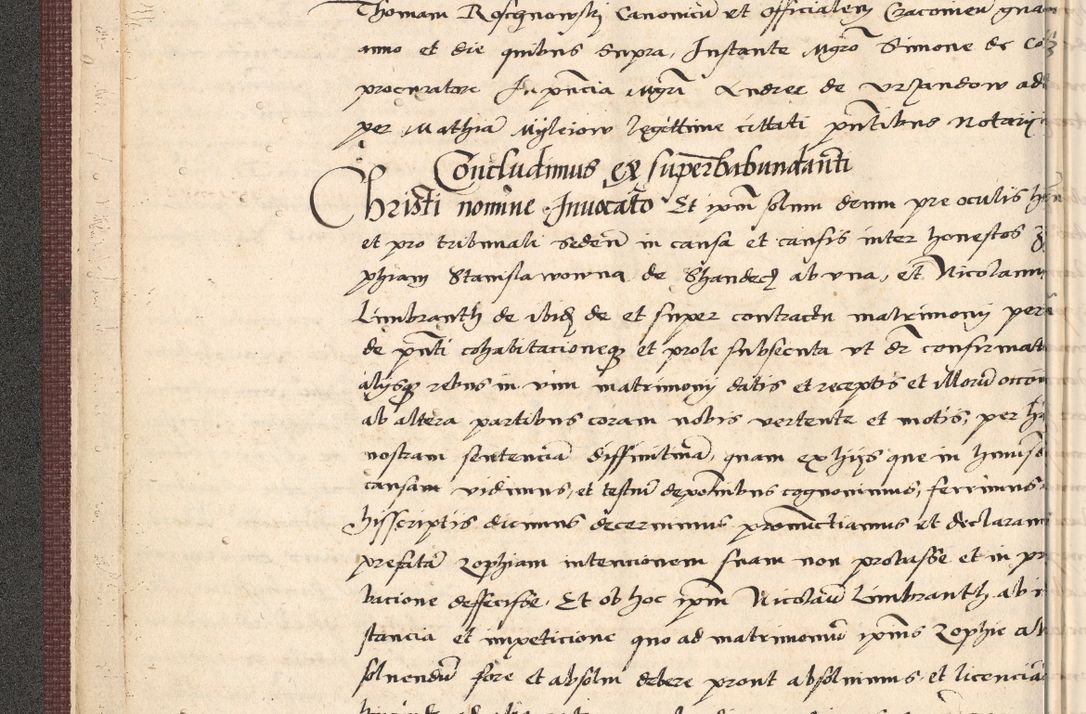 Thomam Roschnowskj Canonicũ et officialem Cracovieñ
anno et die quibus supra, Instante Mgrõ Simone de
procuratore In pñcia Mgri Andree de Urzandow
per Mathiã Myleiow legittime cittati pñtibus Notarij
Concludimus ex superhabundãti
Christi nomine Invocãto Et ipm solum deum pre oculis
et pro tribunali sedeñ in causa et causis inter honestos
phiam Stanislawowna de Shandecz ab una, et Nicolaum
Limbranth de ibid̃ de et super contractu matrimonij
de pñti cohabitacioneqȝ et prole subsecuta ut dr confirmat
alijsqȝ rebus in vim matrimonij datis et receptis et illorũ
ab altera partibus coram nobis vertente et motis, per
nostram sentenciã diffinitiuã, quam ex hijs que in
causam vidimus, et testiũ deponibus cognovimus, ferrimus
hisscriptis dicimus decernimus pronunctiamus et declaram
prefatã Zophiam intencionem suam non probasse et in
bacione deffecisse, Et ob hoc ipm Nicolaũ Limbranth ab
stancia et impeticione quo ad matrimoniũ ipius Zophie
soluendũ fore et absolui debere prout absoluimus et licenciã